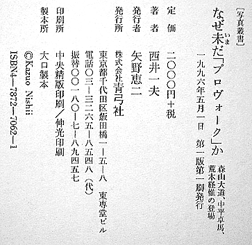 ［写真叢書］
なぜ未だ「プロヴォーク」か
いま
森山大道、中平卓馬、
荒木経惟の登場
一九九六年五月一日　第一版第一刷発行
定価　二〇〇〇円＋税
著者　西井一夫
発行者　矢野恵二
発行所　株式会社青弓社
東京都千代田区飯田橋一-五-八　東専堂ビル
電話〇三-三二六五-八五四八（代）
振替〇〇一八〇-七-一八九四五七
印刷所　中央精版印刷／伸光印刷
製本所　大口製本
©Kazuo Nishii
ISBN4-7872-7062-1